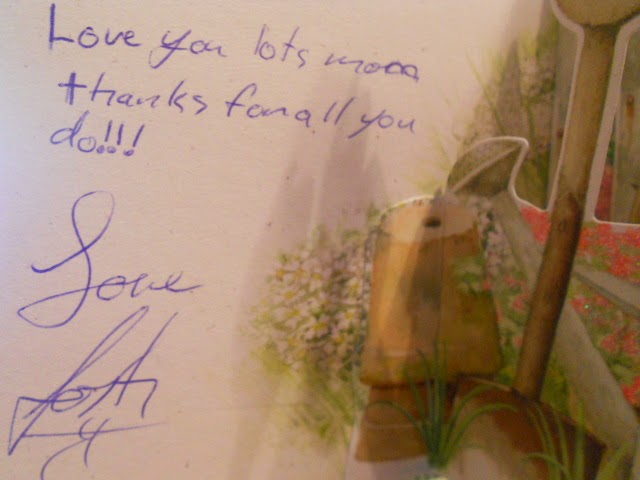 Love you lots mooa
thanks for all you
do!!!
Love